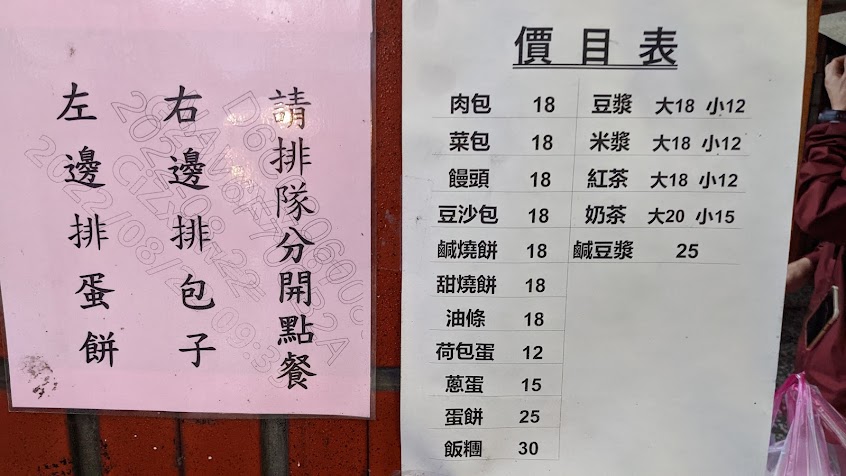 請排隊分開點餐
右邊排包子
左邊排蛋餅
價目表
肉包 18 豆漿 大18 小12
菜包 18 米漿 大18 小12
饅頭 18 紅茶 大18 小12
豆沙包 18 奶茶 大20 小15
鹹燒餅 18 鹹豆漿 25
甜燒餅 18
油條 18
荷包蛋 12
蔥蛋 15
蛋餅 25
飯糰 30